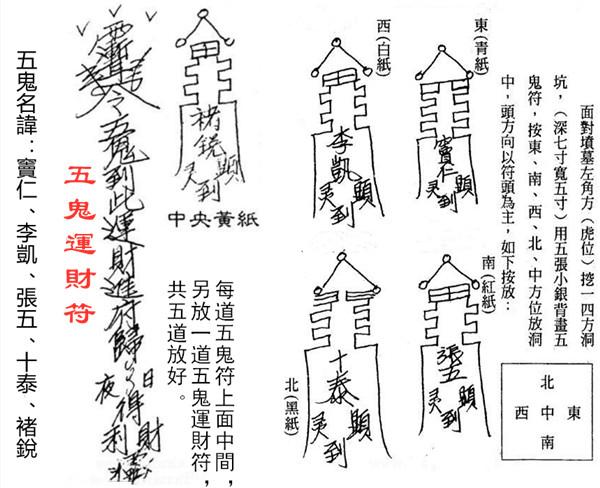 面對墳墓左角方(虎位)挖一四方洞
坑，(深七寸寬五寸)用五張小銀背畫五
鬼符，按東、南、西、北、中方位放洞
中，頭方向以符頭為主，如下按放：
北
西中東
南
東(青紙)
竇仁
顯
灵
到
西(白紙)
李凱
顯
灵
到
南(紅紙)
張五
顯
灵
到
北(黑紙)
十泰
顯
灵
到
褚銳
顯
灵
到
中央黃紙
每道五鬼符上面中間，
另放一道五鬼運財符，
共五道放好。
令五鬼到此運財進府歸
日
夜
得
財
利
五鬼運財符
五鬼名諱：竇仁、李凱、張五、十泰、褚銳